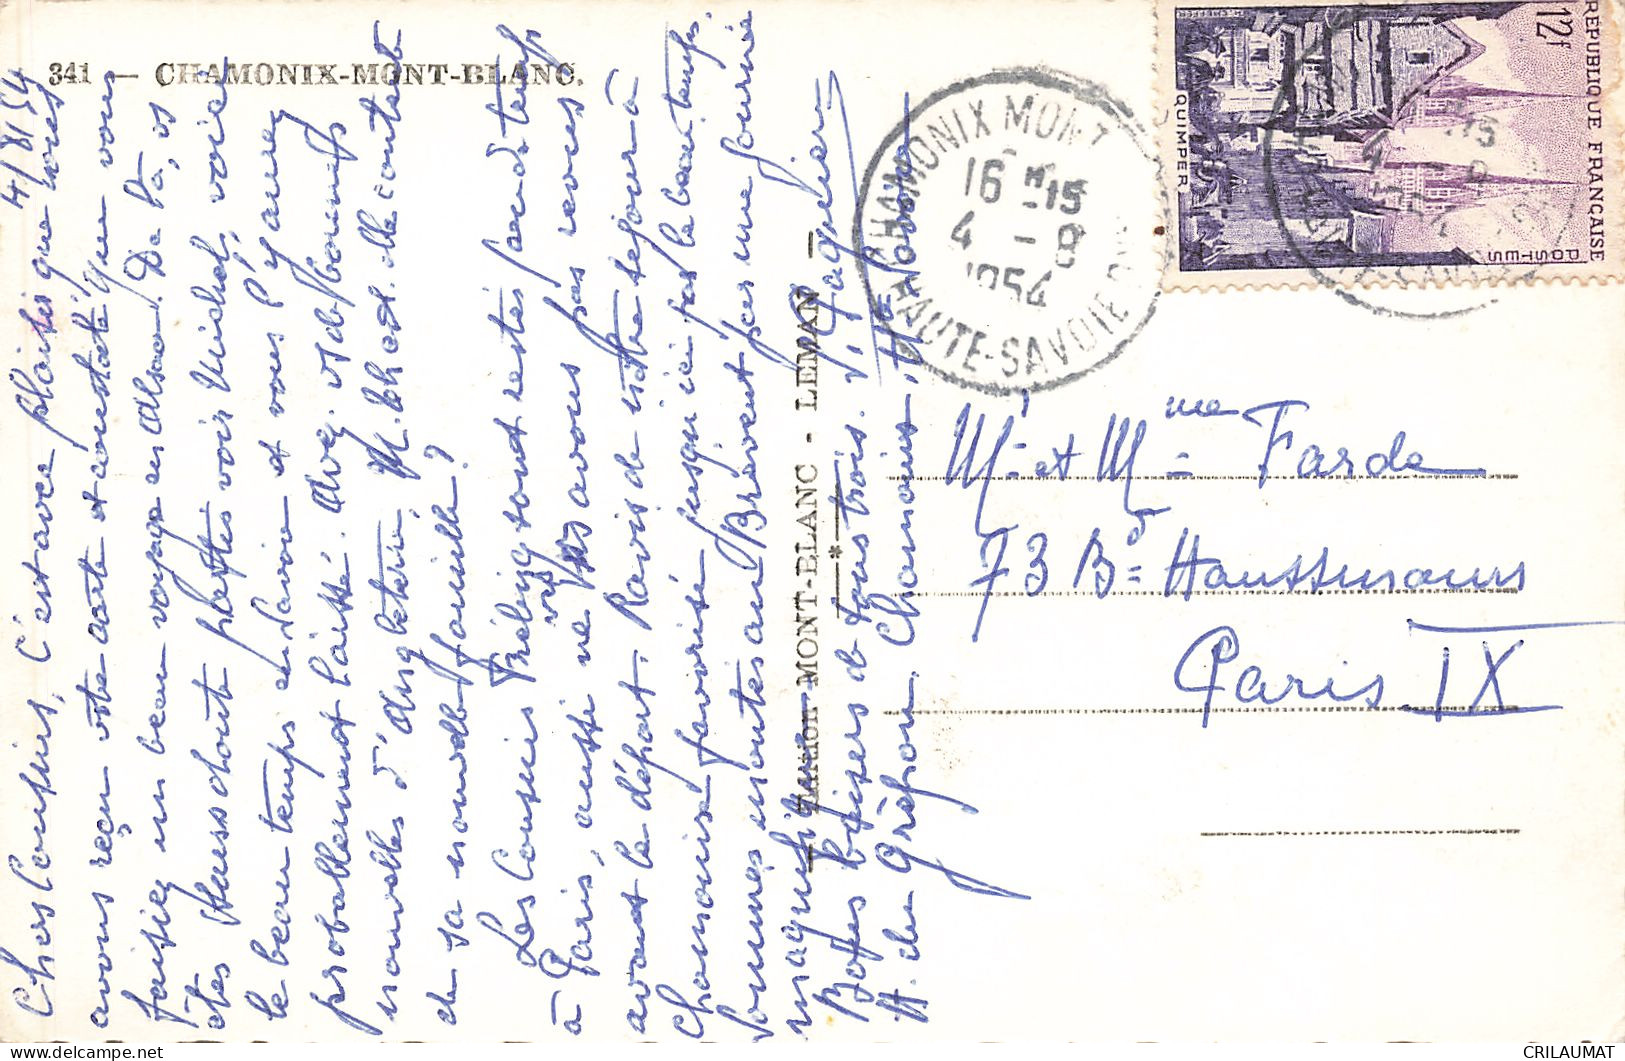 341 — CHAMONIX-MONT-BLANC.
4/8/54
Chers Cousins, C'est avec plaisir que nous
avons reçu votre carte et constaté que vous
faisiez un beau voyage en Alsace. De là, vs
êtes sans doute partis voir Michel, voici
le beau temps en Savoie et vous l'y aurez
probablement laissé. Avez vs de bonnes
nouvelles d'Angleterre, M. Th. est elle contente
de sa nouvelle famille?
Les Cousins sont restés peu de temps
à Paris, aussi ne les avons pas revus
avant le départ. Ravis de notre séjour à
Chamonix favorisé jusqu'ici par le beau temps.
Sommes montés au Brévent par une journée
magnifique
Bons baisers de tous trois.
H. du Grépon, Chamonix, Hte Savoie
TAIRRAZ MONT-BLANC - LEMAN —
*
CHAMONIX MONT BLANC
16 H 15
4 - 8
1954
HAUTE-SAVOIE
RÉPUBLIQUE FRANÇAISE
12f
POSTES
QUIMPER
Mr et Mme Farde
73 Bd Haussmann
Paris IX
CRILAUMAT